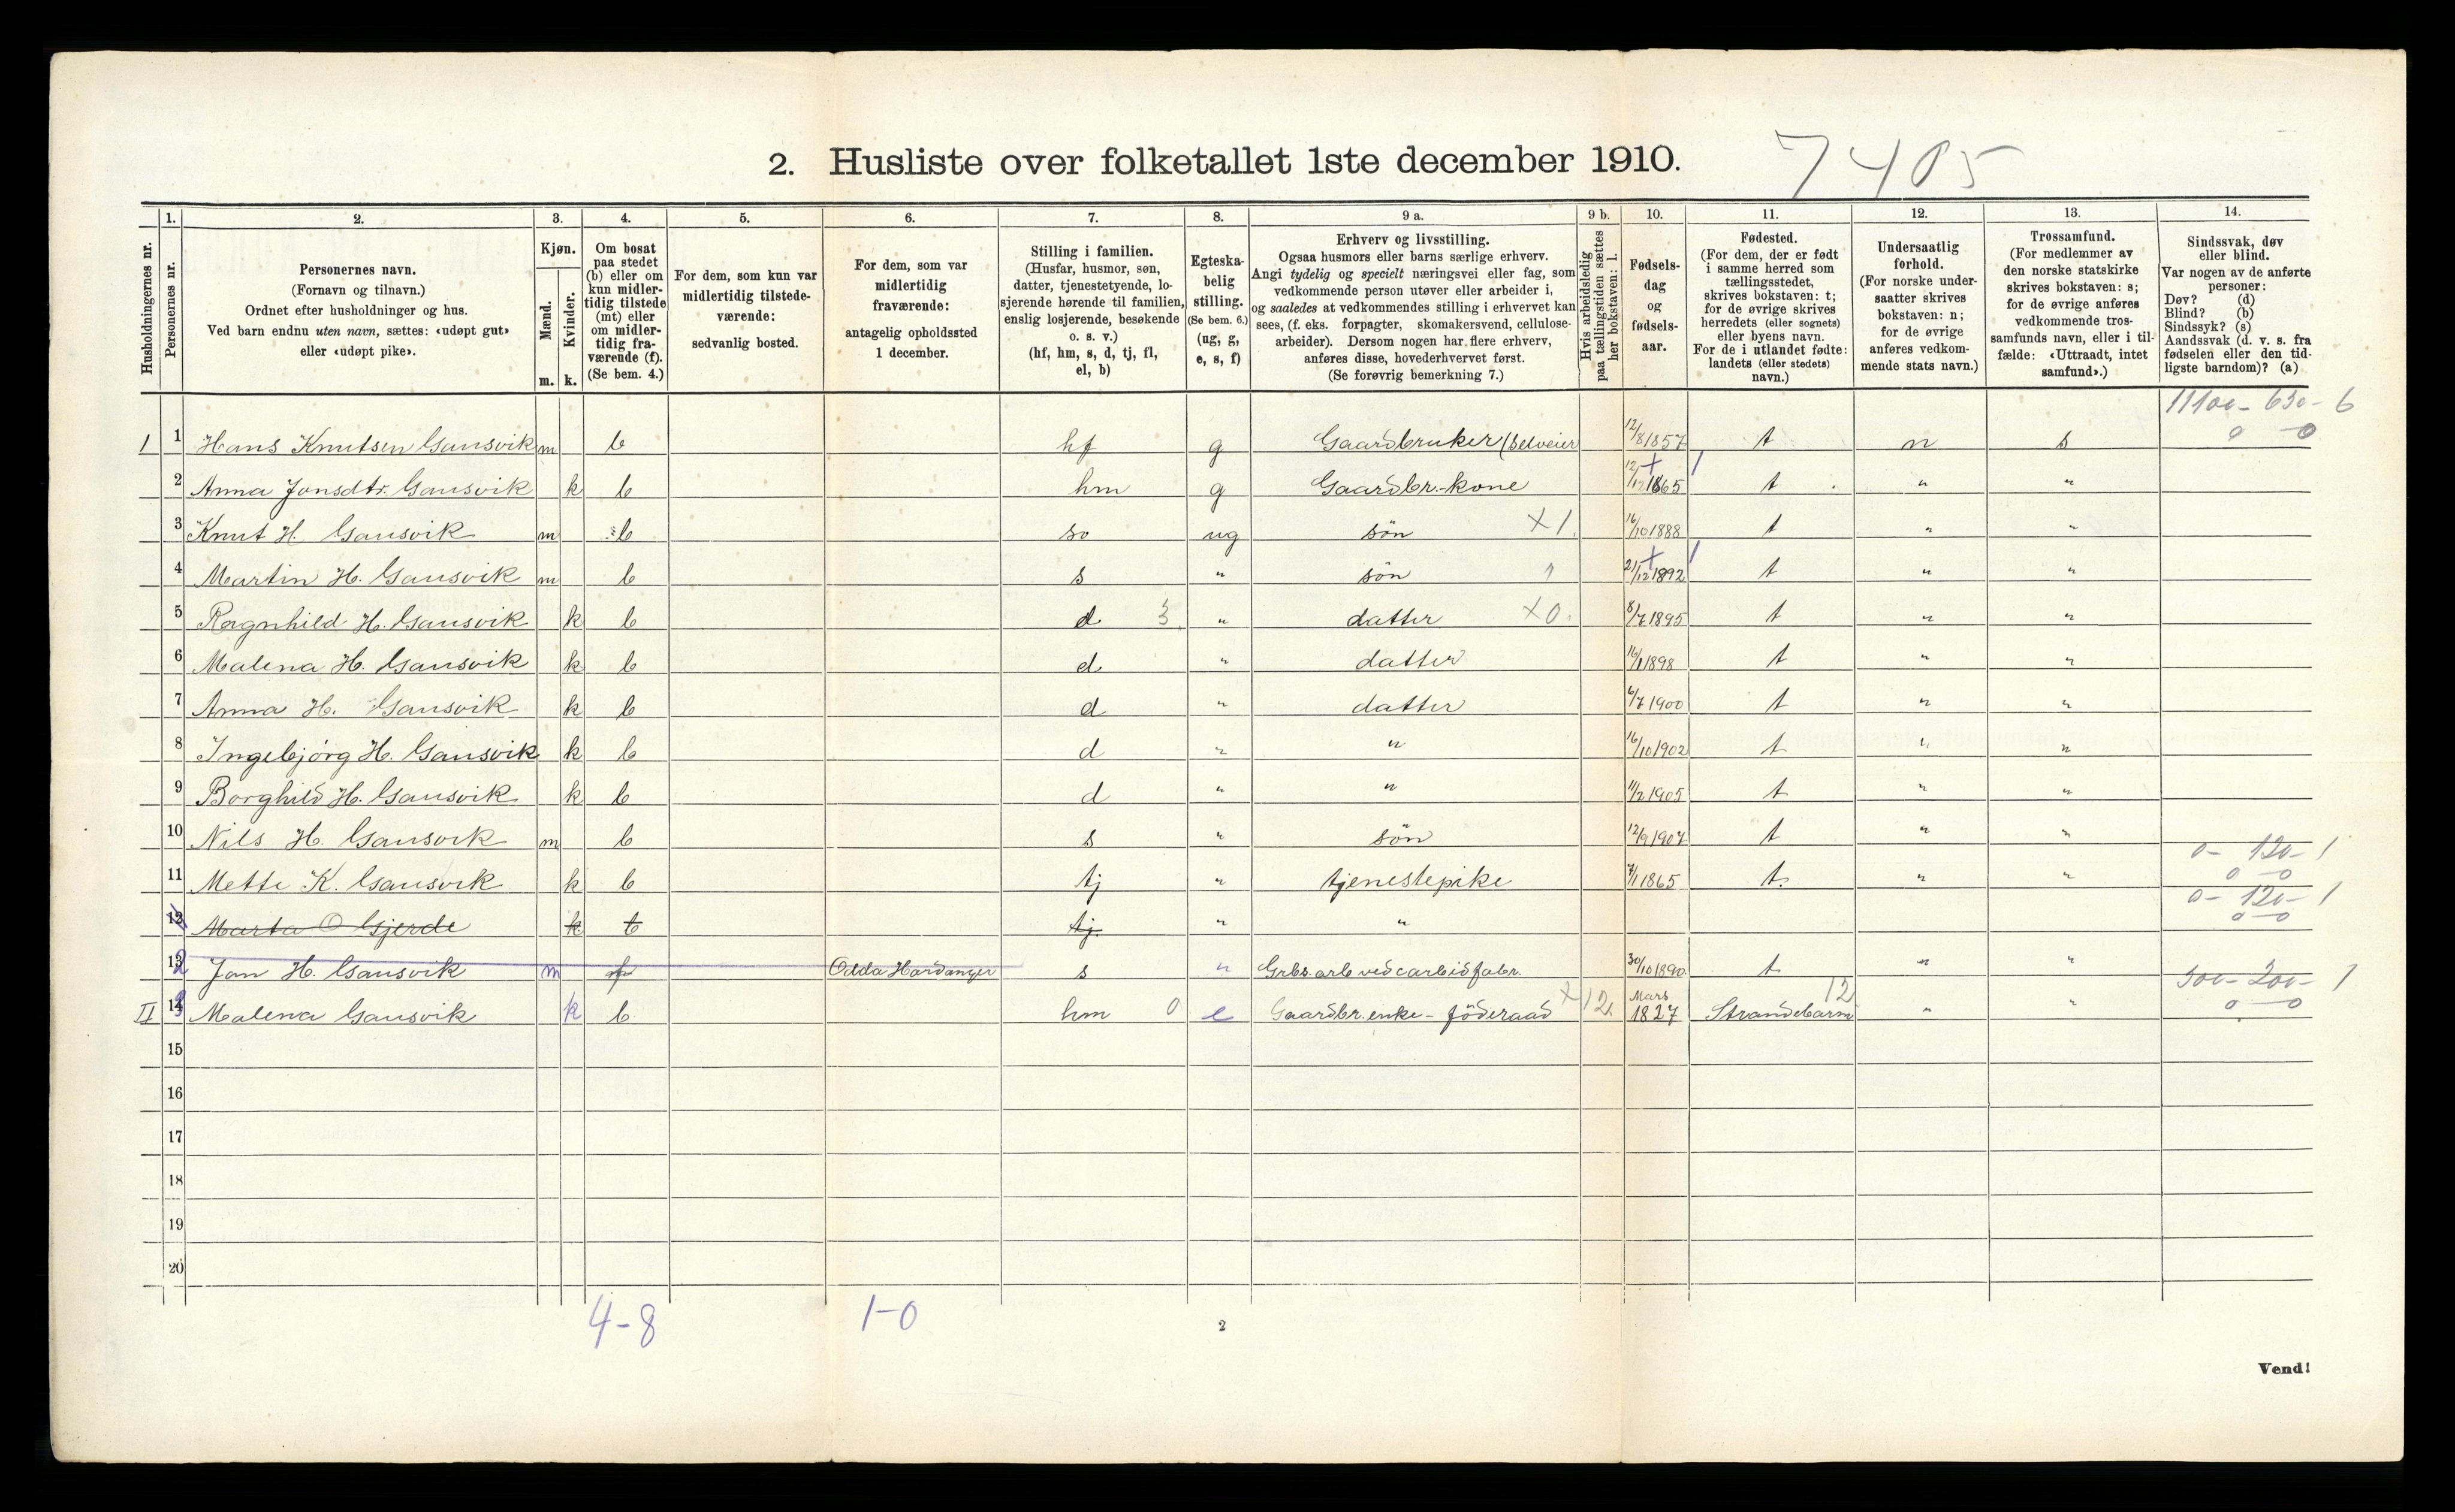 2. Husliste over folketallet 1ste december 1910. 7405
Husholdningernes nr.
1.
Personernes nr.
2.
Personernes navn.
(Fornavn og tilnavn.)
Ordnet efter husholdninger og hus.
Ved barn endnu uten navn, sættes: «udøpt gut»
eller «udøpt pike».
3.
Kjøn.
Mænd.
m.
Kvinder.
k.
4.
Om bosat
paa stedet
(b) eller om
kun midler-
tidig tilstede
(mt) eller
om midler-
tidig fra-
værende (f).
(Se bem. 4.)
5.
For dem, som kun var
midlertidig tilstede-
værende:
sedvanlig bosted.
6.
For dem, som var
midlertidig
fraværende:
antagelig opholdssted
1 december.
7.
Stilling i familien.
(Husfar, husmor, søn,
datter, tjenestetyende, lo-
sjerende hørende til familien,
enslig losjerende, besøkende
o. s. v.)
(hf, hm, s, d, tj, fl,
el, b)
8.
Egteska-
belig
stilling.
(Se bem. 6.)
(ug, g,
e, s, f)
9 a.
Erhverv og livsstilling.
Ogsaa husmors eller barns særlige erhverv.
Angi tydelig og specielt næringsvei eller fag, som
vedkommende person utøver eller arbeider i,
og saaledes at vedkommendes stilling i erhvervet kan
sees, (f. eks. forpagter, skomakersvend, cellulose-
arbeider). Dersom nogen har flere erhverv,
anføres disse, hovederhvervet først.
(Se forøvrig bemerkning 7.)
9 b.
Hvis arbeidsledig
paa tællingstiden sættes
her bokstaven: l.
10.
Fødsels-
dag
og
fødsels-
aar.
11.
Fødested.
(For dem, der er født
i samme herred som
tællingsstedet,
skrives bokstaven: t;
for de øvrige skrives
herredets (eller sognets)
eller byens navn.
For de i utlandet fødte:
landets (eller stedets)
navn.)
12.
Undersaatlig
forhold.
(For norske under-
saatter skrives
bokstaven: n;
for de øvrige
anføres vedkom-
mende stats navn.)
13.
Trossamfund.
(For medlemmer av
den norske statskirke
skrives bokstaven: s;
for de øvrige anføres
vedkommende tros-
samfunds navn, eller i til-
fælde: «Uttraadt, intet
samfund».)
14.
Sindssvak, døv
eller blind.
Var nogen av de anførte
personer:
Døv? (d)
Blind? (b)
Sindssyk? (s)
Aandssvak (d. v. s. fra
fødselen eller den tid-
ligste barndom)? (a)
1100- 630- 6
1 1 Hans Knutsen Gausvik m b hf g Gaardbruker (Selveier 12/8 1857 t n s 0 0
2 Anna Jonsdtr. Gausvik k b hm g Gaardbr.-kone 12/12 1865 t " "
3 Knut H. Gausvik m b sø ug søn X 1. 16/10 1888 t " "
4 Martin H. Gausvik m b s " søn 21/12 1892 t " "
5 Ragnhild H. Gausvik k b d 3 " datter X 0. 8/7 1895 t " "
6 Malena H. Gausvik k b d " datter 16/1 1898 t " "
7 Anna H. Gausvik k b d " datter 6/7 1900 t " "
8 Ingebjörg H. Gausvik k b d " " 16/10 1902 t " "
9 Borghild H. Gausvik k b d " " 11/2 1905 t " "
10 Nils H. Gausvik m b s " sön 12/9 1907 t " "
0- 120- 1
11 Mette K. Gausvik k b tj " tjenestepike 7/1 1865 t. " " 0 0
0- 120- 1
12 Marta O Gjerde k b tj. " " 0-0
13 Jan H. Gausvik m f Odda Hardanger s " Grbs. arb ved carbidfabr. 30/10 1890 t " "
500- 200- 1
II 14 Malena Gausvik k b hm 0 e Gaardbr. enke - föderaad X 12. Mars 1827 Strandebarm 12 " " 0-0
15
16
17
18
19
20
4-8 1-0
2
Vend!